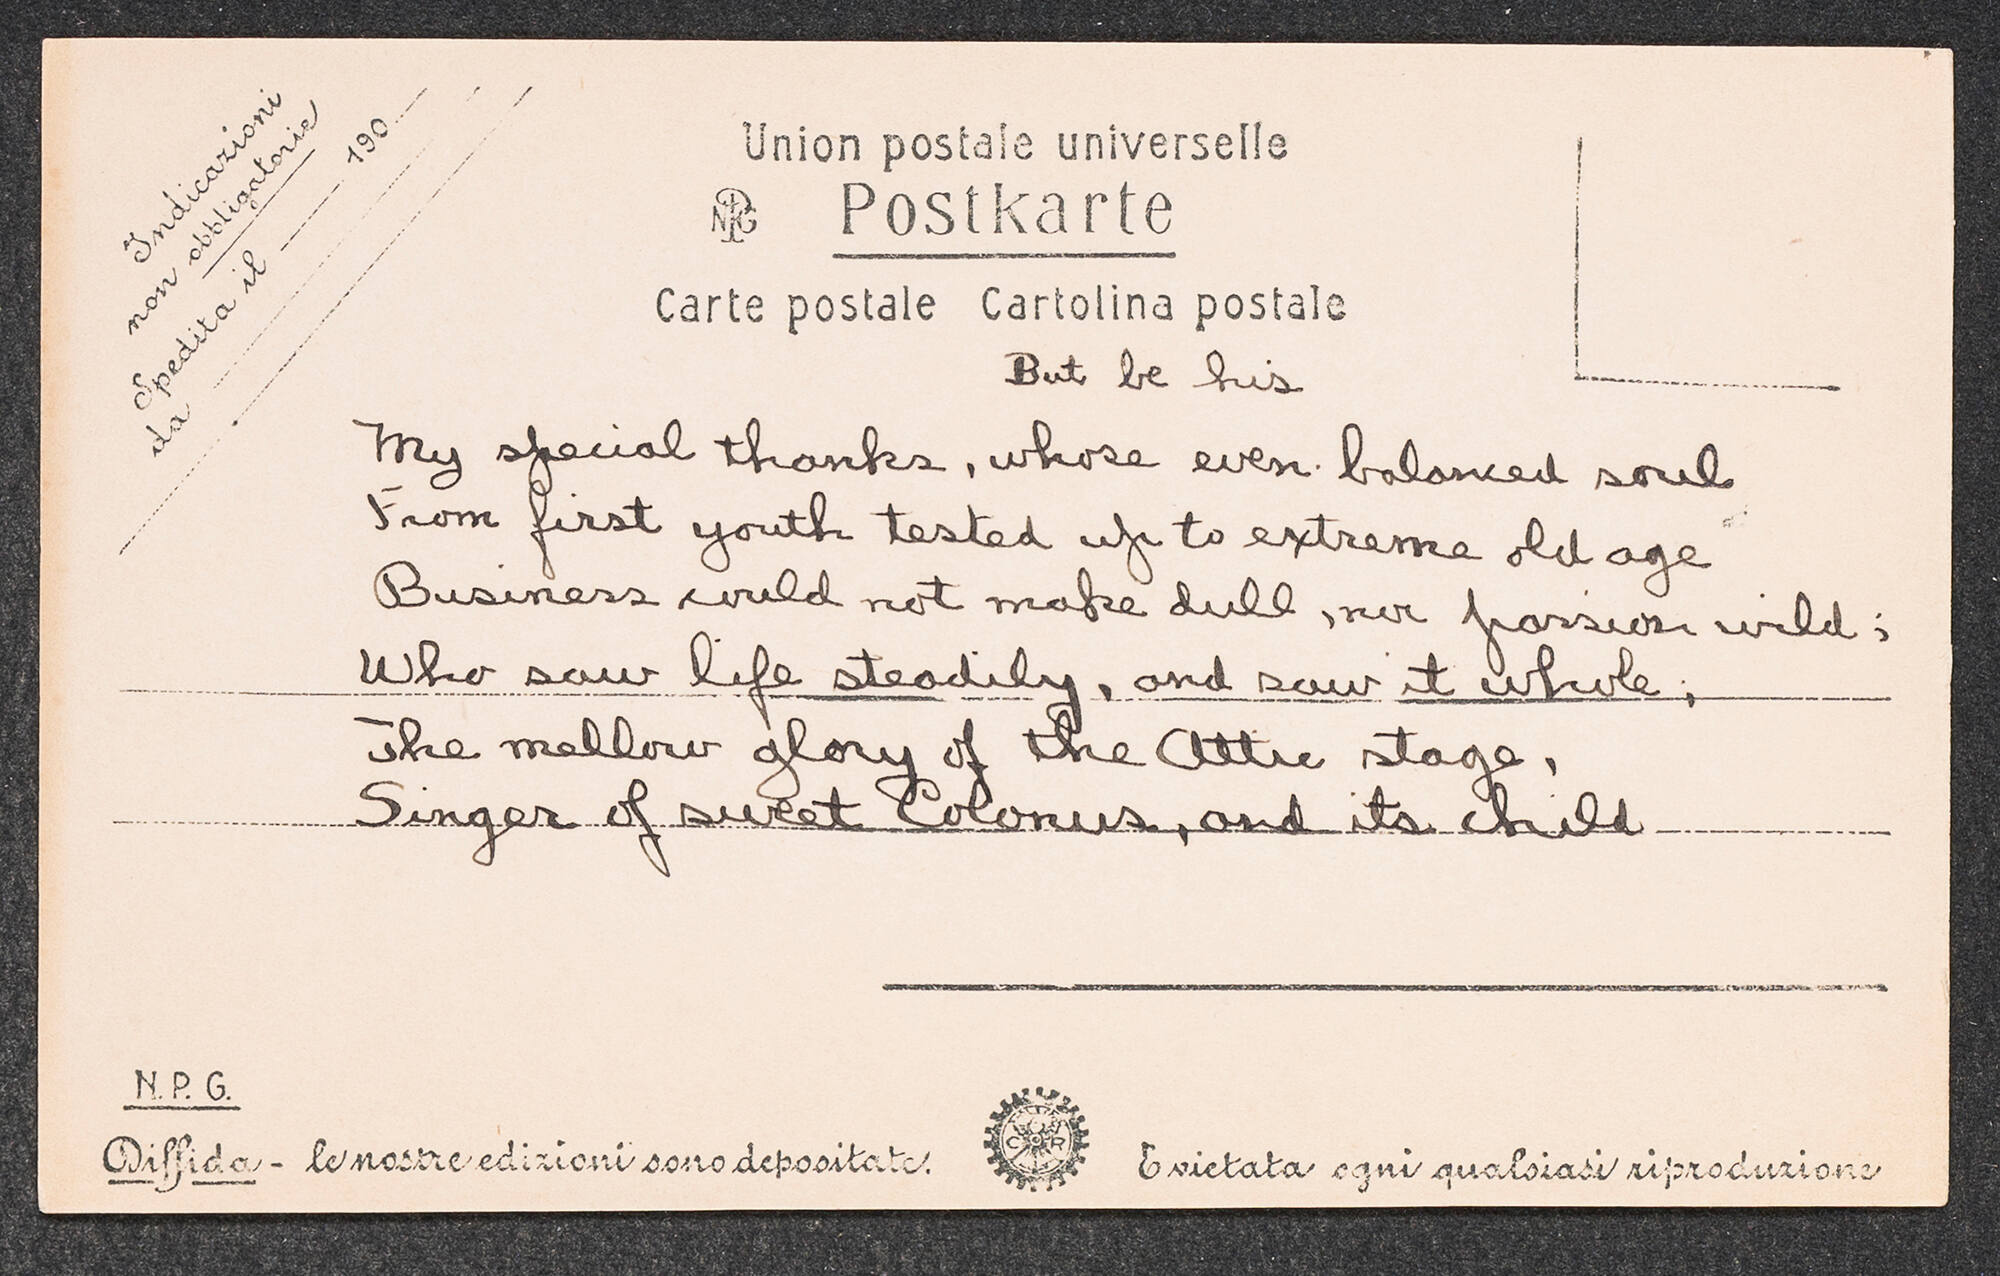 Indicazioni
non obbligatorie
Spedita il 190
da
Union postale universelle
NPG Postkarte
Carte postale Cartolina postale
But be his
My special thanks, whose even balanced soul
From first youth tested up to extreme old age
Business could not make dull, nor passion wild;
Who saw life steadily, and saw it whole;
The mellow glory of the Attic stage,
Singer of sweet Colonus, and its child
N.P.G.
Diffida - le nostre edizioni sono depositate.
C R
E vietata ogni qualsiasi riproduzione